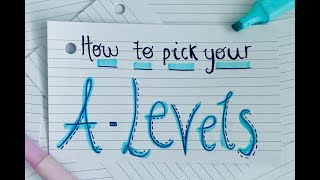 How to pick your
A-Levels